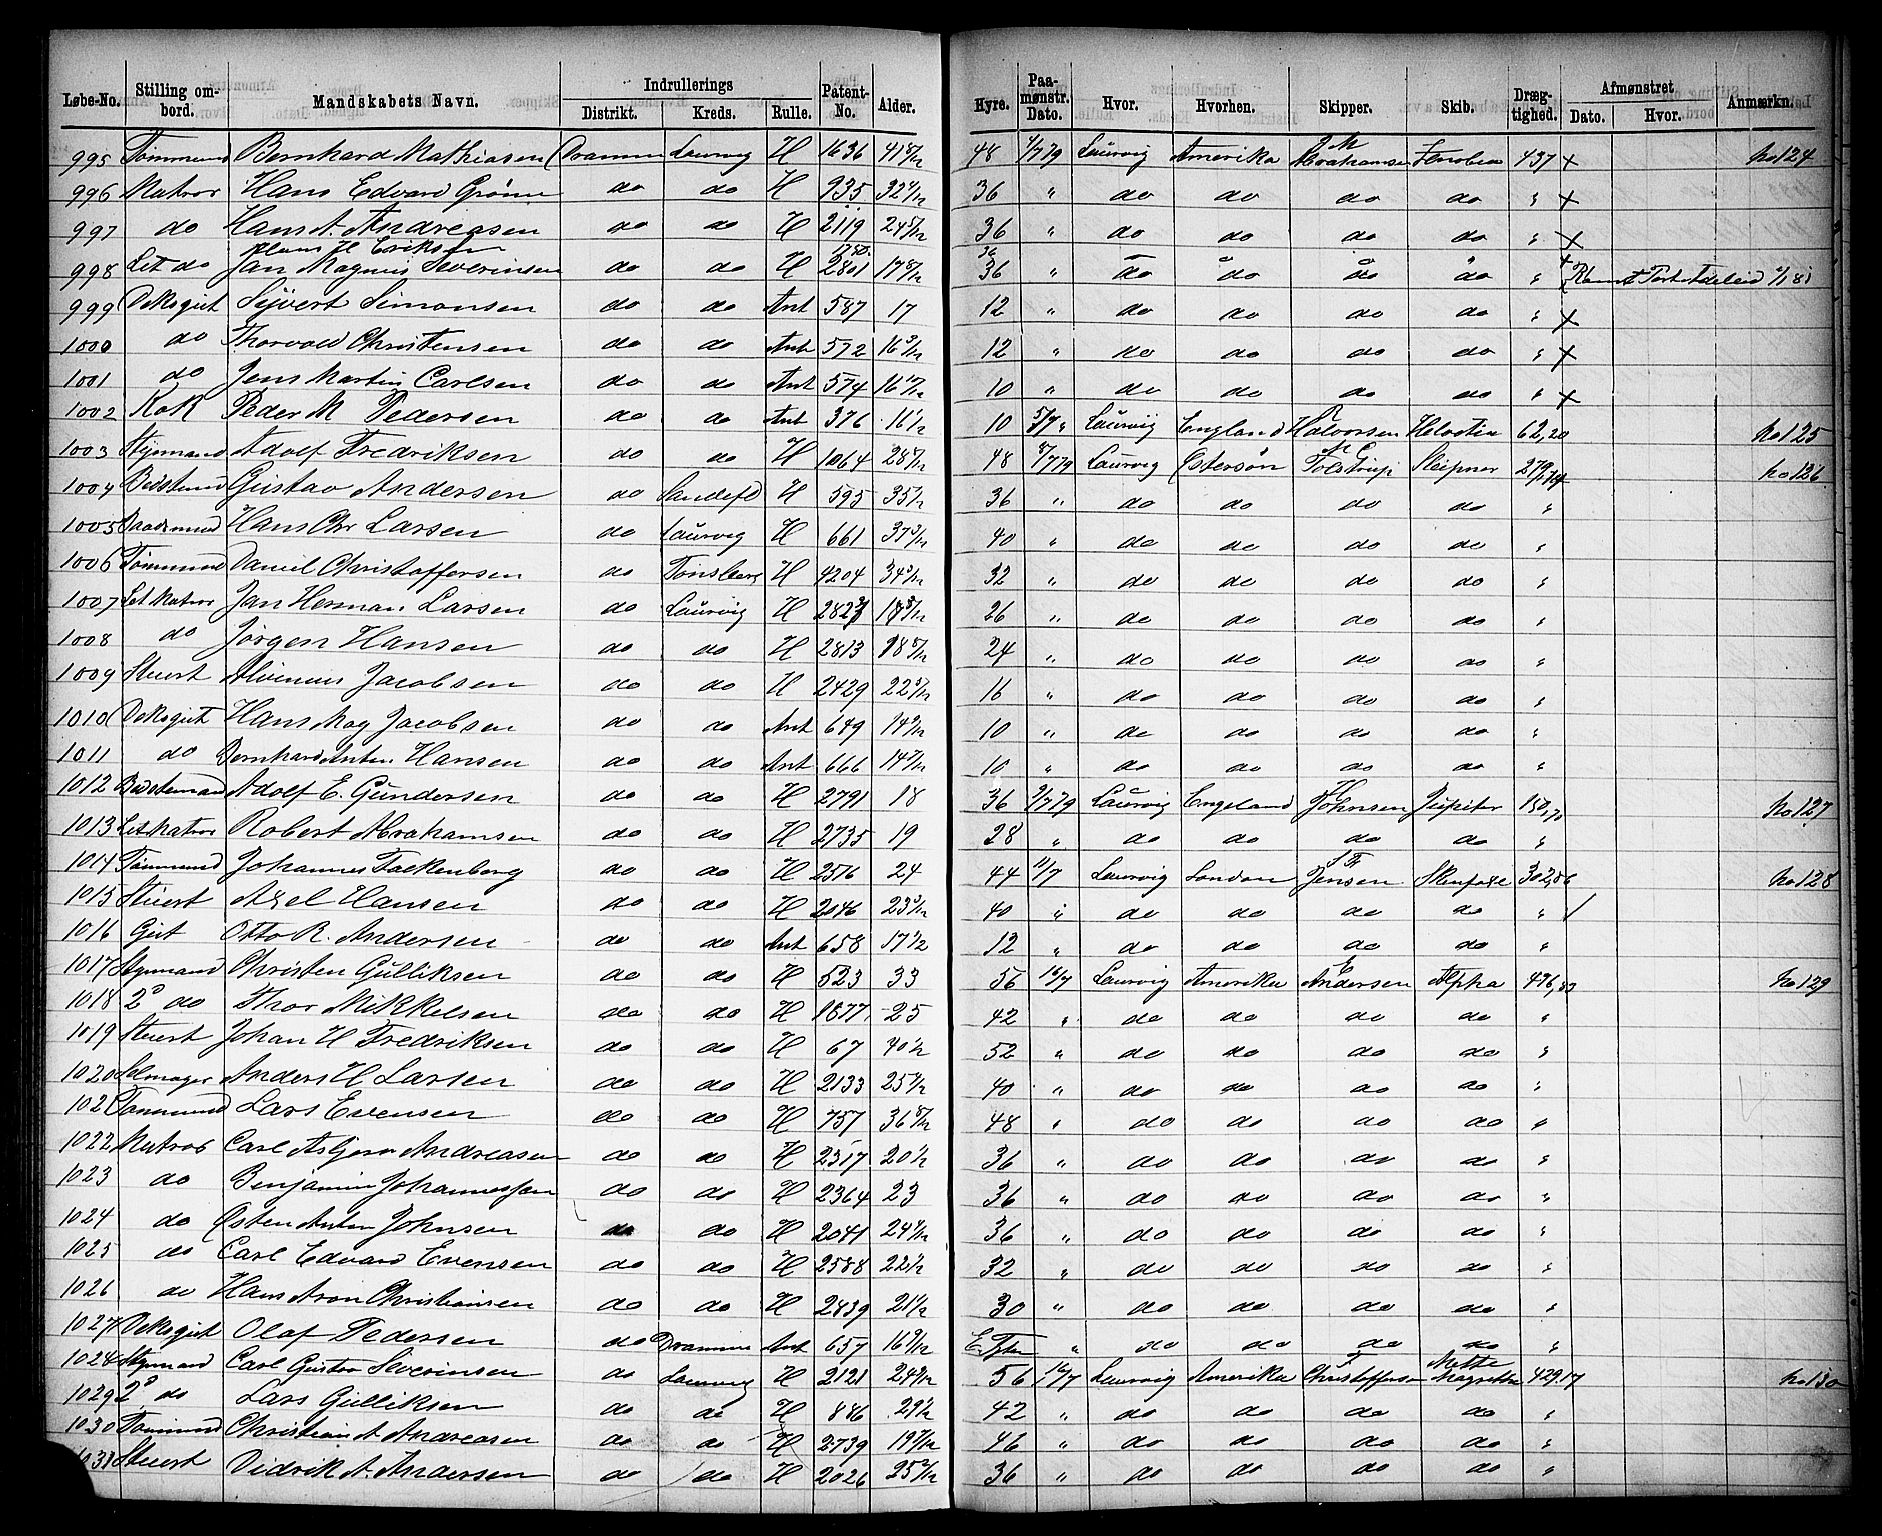 Løbe-No. Stilling ombord. Mandskabets Navn. Indrullerings Distrikt. Kreds. Rulle. Patent-No. Alder. Hyre. Paamønstr. Dato. Hvor. Hvorhen. Skipper. Skib. Drægtighed. Afmønstret Dato. Hvor. Anmærkn.
995 Tømmmd Bernhard Mathiasen Drammen Laurvig H 1636 41 48 1/7 79 Laurvig Amerika Abrahamsen Zenobia 437 × No 124
996 Matros Hans Edvard do do H 935 32 36 " do do do do " ×
997 do Hans A. Andreasen do do H 2119 24 36 " do do do do " ×
Hans H Eriksen
998 Let do Jan Magnus Severinsen do do H 2801 17 36 " do do do do "
999 Dæksgut Sijvert Simonsen do do Ant 587 17 12 " do do do do " ×
1000 do Thorvald Christensen do do Ant 572 16 12 " do do do do " ×
1001 do Jens Martin Carlsen do do Ant 574 16 10 " do do do do " ×
1002 Kok Peder M Pedersen do do Ant 376 16 1/2 10 5/7 " Laurvig England Halvorsen Helvetia 62,20 No 125
1003 Styrmand Adolf Fredriksen do do H 1064 28 48 8/7 79 Laurvig Østersøn Tolstrup Sleipner No 126
1004 Gustav Andersen do Sandefd H 595 35 36 " do do do do "
1005 Baadsmand Hans Chr Larsen do Laurvig H 661 37 40 " do do do do "
1006 Tømmmd Daniel Christoffersen do Tønsberg H 4204 34 32 " do do do do "
1007 Let Matros Jan Herman Larsen do Laurvig H 26 " do do do do "
1008 do Jørgen Hansen do do H 2813 18 24 " do do do do "
1009 Stuert Jacobsen do do H 2429 22 16 " do do do do "
1010 Dæksgut Hans Jacobsen do do Ant 649 14 10 " do do do do "
1011 do Bernhard Anton Hansen do do Ant 666 14 10 " do do do do "
1012 Bedstemand Adolf E. Gundersen do do H 2791 18 36 9/7 79 Laurvig Engeland Johnsen Jupiter 150,70 No 127
1013 Let Matros Robert Abrahamsen do do H 2735 19 28 " do do do do "
1014 Tømmmd Johannes Falkenberg do do H 2516 24 44 11/7 Laurvig London Jensen 302,86 No 128
1015 Stuert Axel Hansen do do H 2046 23 40 " do do do do "
1016 Gut Otto R. Andersen do do Ant 658 17 1/2 12 " do do do do "
1017 Styrmand Christen Gulliksen do do H 523 33 56 16/7 Laurvig Amerika Andersen Alpha No 129
1018 2d do Thor Mikkelsen do do H 1877 25 42 " do do do do "
1019 Stuert Johan H Fredriksen do do H 67 40 1/2 52 " do do do do "
1020 Seilmager Anders H Larsen do do H 2133 25 40 " do do do do "
102 Tømmmd Lars Evensen do do H 757 36 48 " do do do do "
1022 Matros Carl Asbjørn Andreasen do do H 2317 20 1/2 36 " do do do do "
1023 do Benjamin Johannessen do do H 2364 23 36 " do do do do "
1024 do Østen Anton Johnsen do do H 2041 24 36 " do do do do "
1025 do Carl Edvard Evensen do do H 2588 22 1/2 32 " do do do do "
1026 do Hans Aron Christiansen do do H 2839 21 1/2 30 " do do do do "
1027 Dæksgut Olaf Pedersen do Drammen Ant 657 16 " do do do do "
1028 Styrmand Carl Gustav Severinsen do Laurvig H 2121 24 56 16/7 Laurvig Amerika Christoffersen Mette Magrethe 429,17 No 130
1029 2d do Lars Gulliksen do do H 886 29 1/2 42 " do do do do "
1030 Tømmmd Christian A Andreasen do do H 2739 19 46 " do do do do "
1031 Stuert Didrik A. Andersen do do H 2026 25 36 " do do do do "